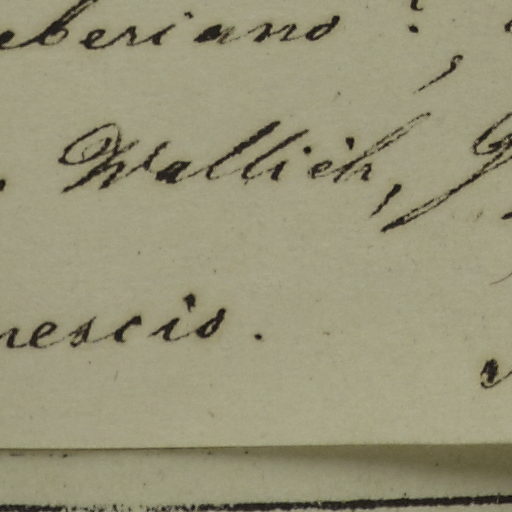 eberiano?
Wallich,
nescio.